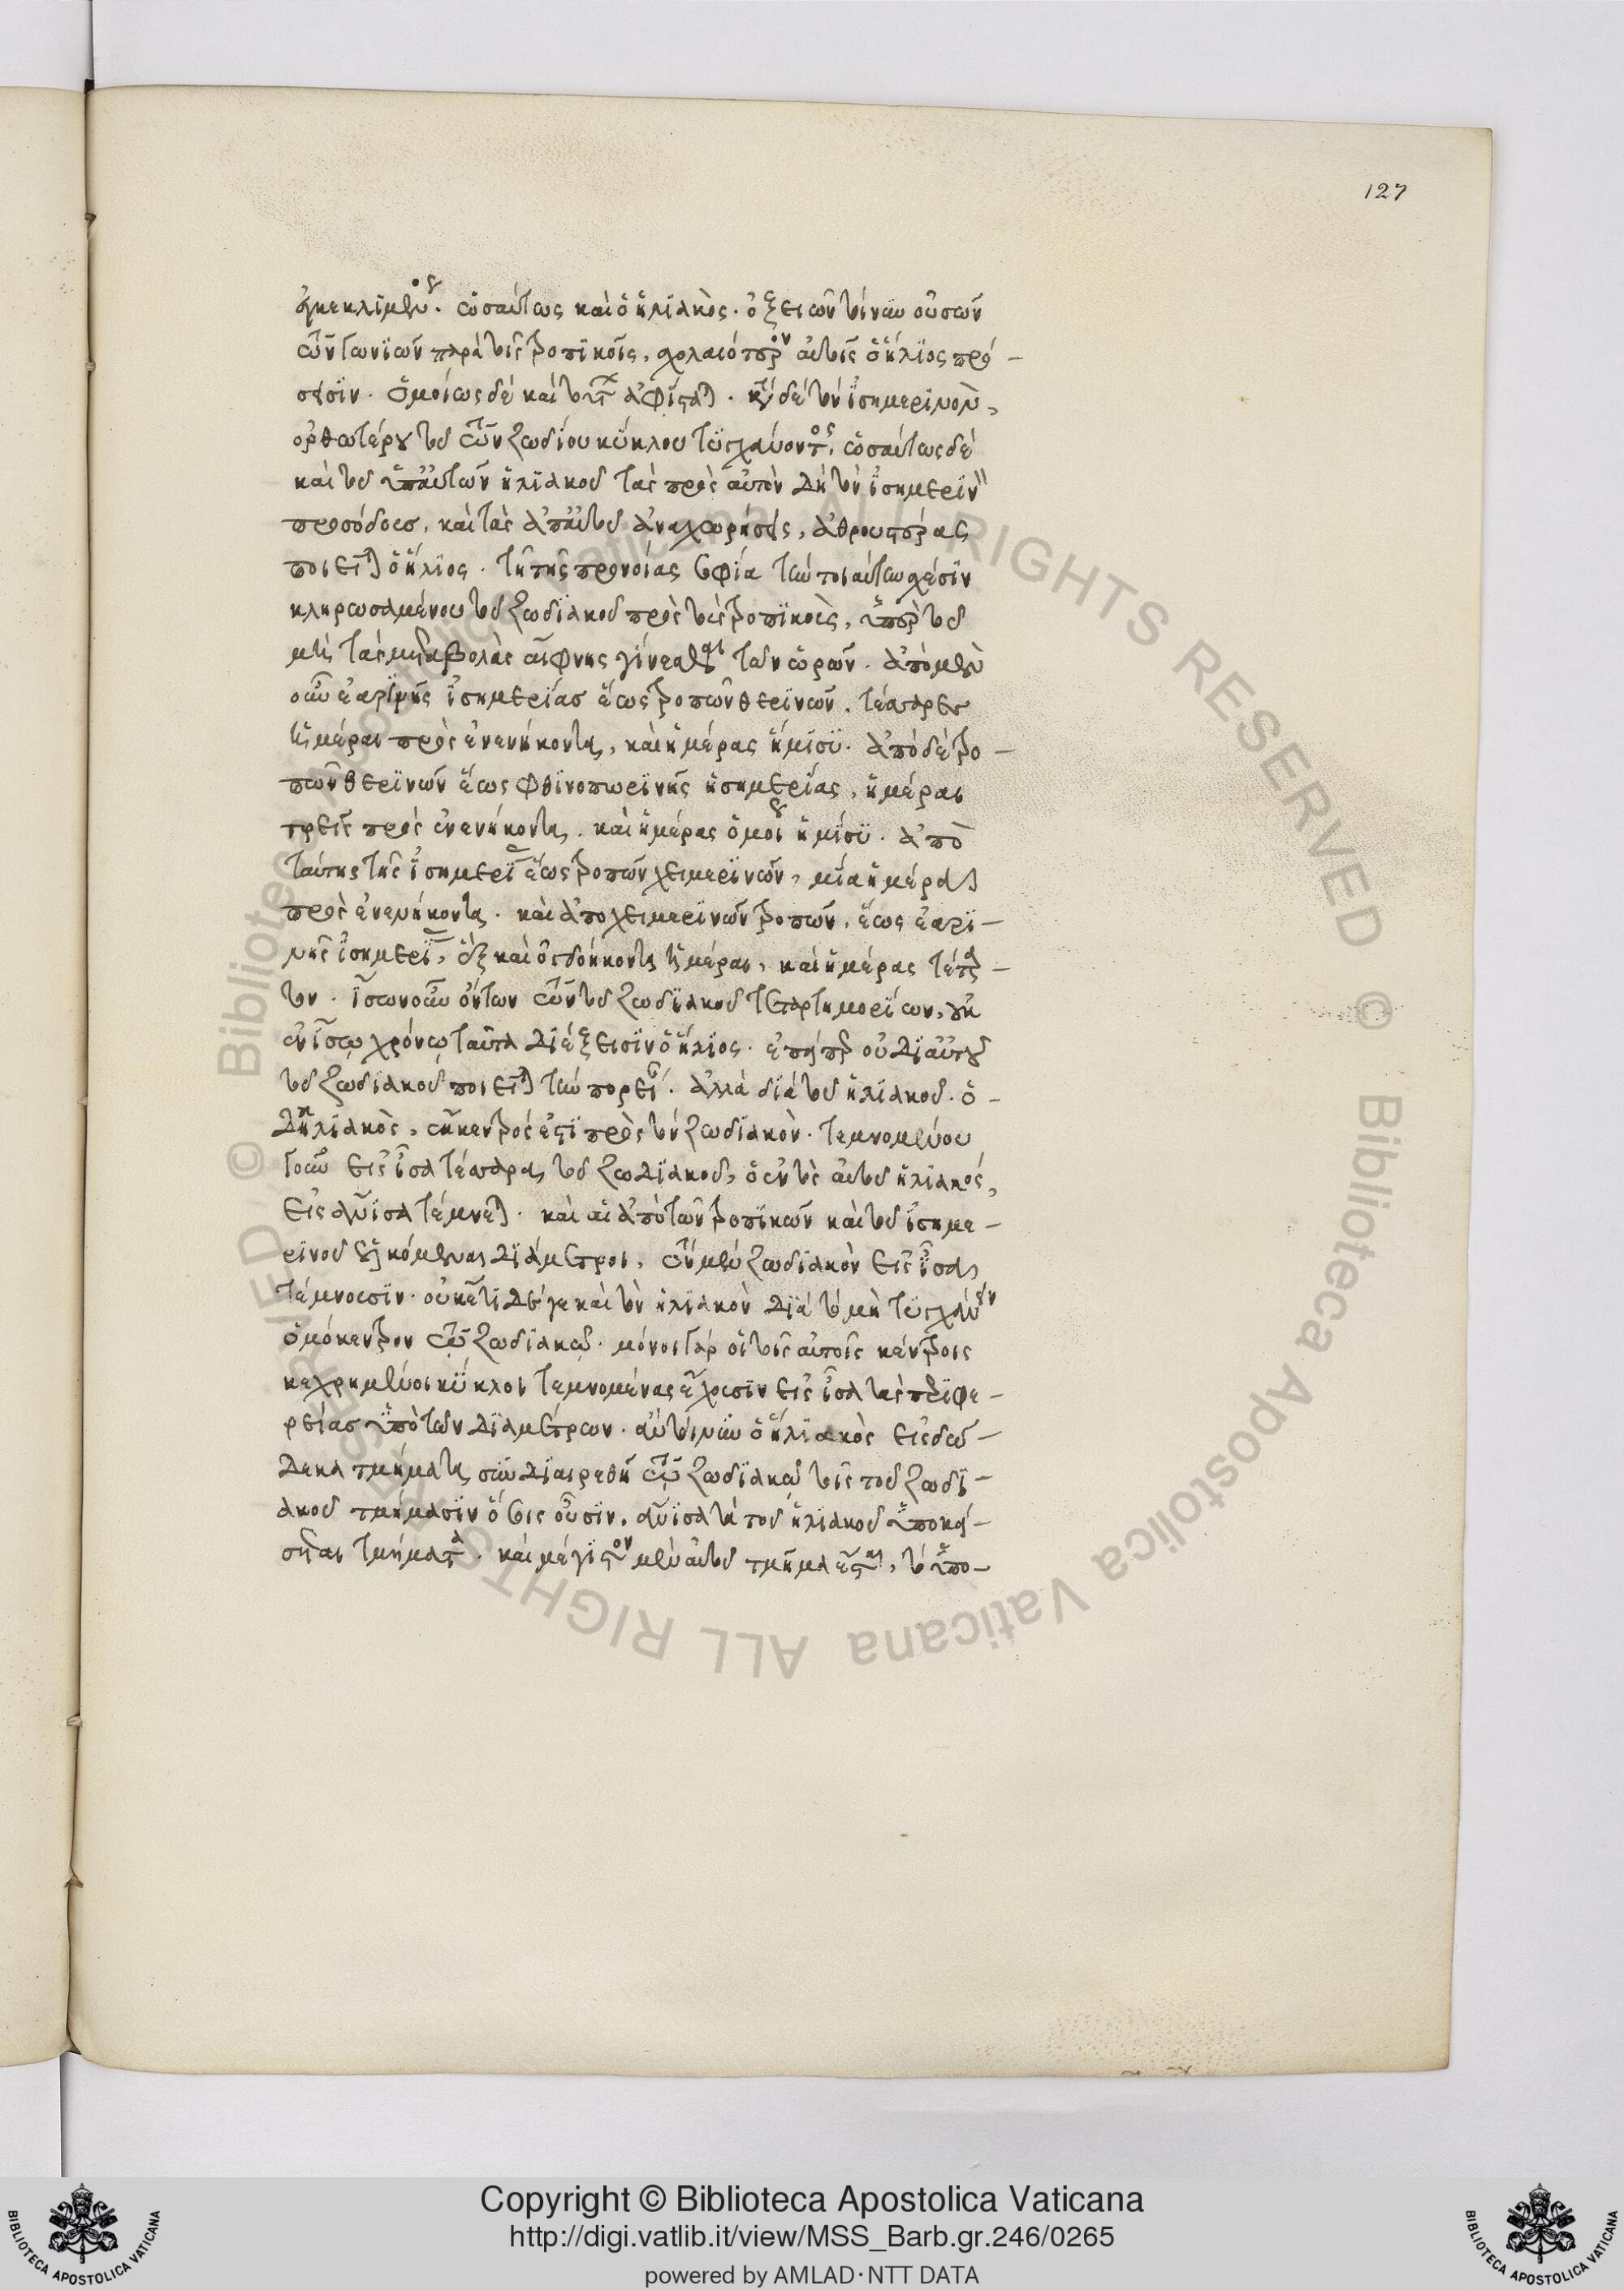 127
ἐγκεκλιμένου. ὡσαύτως καὶ ὁ ἡλιακὸς. ὀξειῶν τοίνυν οὐσῶν
τῶν γωνιῶν παρὰ τοῖς τροπικοῖς, σχολαιότερον αὐτοῖς ὁ ἥλιος πρό–
σεισιν. ὁμοίως δὲ καὶ ἀφίσταται. κατὰ δὲ τὸν ἰσημερινὸν,
ὀρθωτέρου τοῦ τῶν ζωδίου κύκλου τυγχάνοντος, ὡσαύτως δὲ
καὶ τοῦ ὑπ' αὐτῶν ἡλιακοῦ τὰς πρὸς αὐτὸν δὴ τὸν ἰσημερινὸν
προσόδους, καὶ τὰς ἀπ' αὐτοῦ ἀναχωρήσεις, ἀθρουστέρας
ποιεῖται ὁ ἥλιος. τῆ τῆς προνοίας σοφία τὴν τοιαύτην σχέσιν
κληρωσαμένου τοῦ ζωδιακοῦ πρὸς τοὺς τροπικοὺς, ὑπὲρ τοῦ
μὴ τὰς μεταβολὰς αἴφνης γίνεσθαι τῶν ὡρῶν. ἀπὸ μὲν
οὖν ἐαρινῆς ἰσημερίας ἕως τροπῶν θερινῶν, τέσσαρες
ἡμέραι πρὸς ἐνενήκοντα, καὶ ἡμέρας ἥμισυ. ἀπὸ δὲ τρο–
πῶν θερινῶν ἕως φθινοπωρινῆς ἠσημερίας, ἡμέραι
τρεῖς πρὸς ἐνενήκοντα. καὶ ἡμέρας ὁμοῦ ἥμισυ. ἀπὸ
ταύτης τῆς ἰσημερίας ἕως τροπῶν χειμερινῶν, μία ἡμέρα
πρὸς ἐνενήκοντα. καὶ ἀπο χειμερινῶν τροπῶν, ἕως ἐαρι–
νῆς ἰσημερίας, ἓξ καὶ ὀγδοήκοντα ἡμέραι, καὶ ἡμέρας τέταρ–
τον. ἴσων οὖν ὄντων τῶν τοῦ ζωδιακοῦ τεταρτημορίων, οὐκ
ἐν ἴσῳ χρόνῳ ταῦτα διέξεισιν ὁ ἥλιος. ἐπείπερ οὐ δι' αὐτοῦ
τοῦ ζωδιακοῦ ποιεῖται τὴν πορείαν. ἀλλὰ διὰ τοῦ ἡλιακοῦ. ὁ–
δ' ἡλιακὸς, ἔκκεντρός ἐστι πρὸς τὸν ζωδιακὸν. τεμνομένου
γοῦν εἰς ἴσα τέσσαρα τοῦ ζωδιακοῦ, ὁ ἐντὸς αὐτοῦ ἡλιακὸς,
εἰς ἄνισα τέμνεται. καὶ αἱ ἀπὸ τῶν τροπικῶν καὶ τοῦ ἰσημε–
ρινοῦ ἡκόμεναι διάμετροι, τὸν μὲν ζωδιακὸν εἰς ἴσα
τέμνουσιν. οὐκέτι δέ γε καὶ τὸν ἡλιακὸν διὰ τὸ μὴ τυγχάνειν
ὁμόκεντρον τῷ ζωδιακῷ. μόνοι γὰρ οἱ τοῖς αὐτοῖς κέντροις
κεχρημένοι κύκλοι τεμνομένας ἔχουσιν εἰς ἴσα τὰς περιφε–
ρείας ὑπὸ τῶν διαμέτρων. ἂν τοίνυν ὁ ἡλιακὸς εἰς δώ–
δεκα τμήματα συνδιαιρεθῆ τῷ ζωδιακῷ τοῖς τοῦ ζωδι–
ακοῦ τμήμασιν ἴσοις οὖσιν, ἄνισα τὰ τοῦ ἡλιακοῦ ὑποκεί–
σεται τμήματα. καὶ μέγιστον μὲν αὐτοῦ τμῆμα ἔσται, τὸ ὑπο–
Copyright © Biblioteca Apostolica Vaticana
http://digi.vatlib.it/view/MSS_Barb.gr.246/0265
powered by AMLAD·NTT DATA